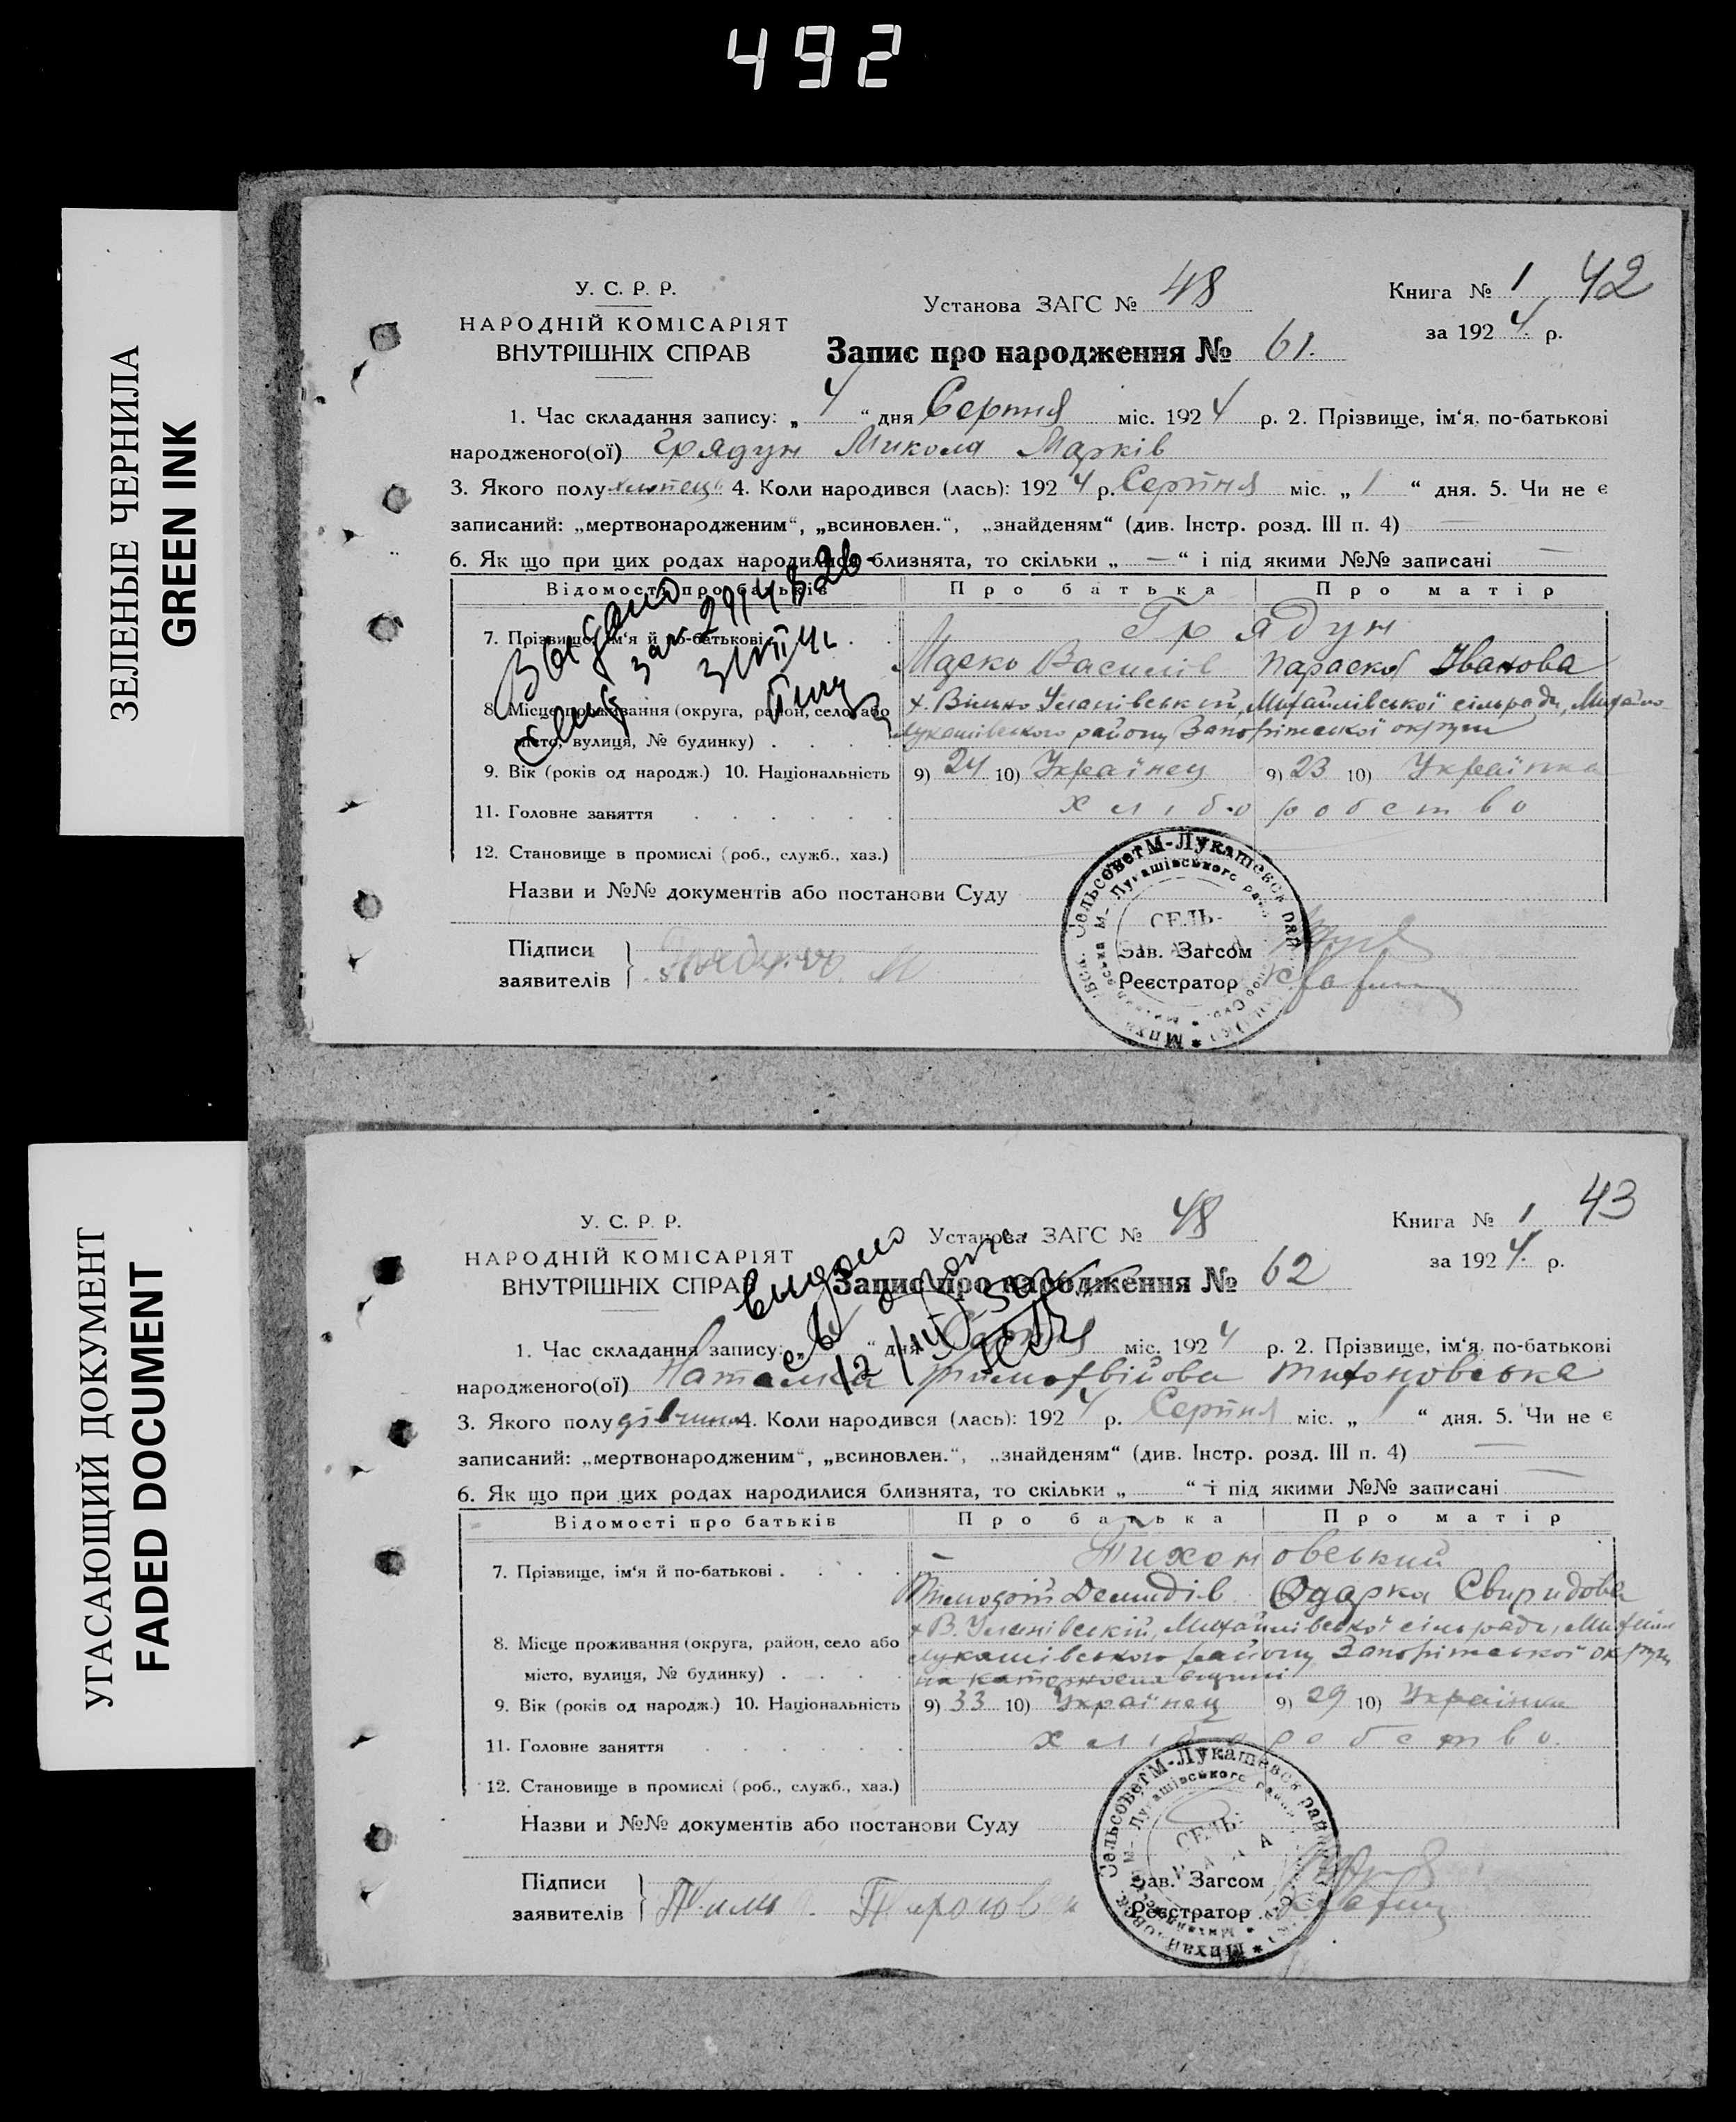 492
ЗЕЛЕНЫЕ ЧЕРНИЛА
GREEN INK
У. С. Р. Р.
НАРОДНІЙ КОМІСАРІЯТ
ВНУТРІШНІХ СПРАВ
Установа ЗАГС № 48
Книга № 1 42
за 1924 р.
Запис про народження № 61.
1. Час складання запису: „ 4 “ дня Серпня міс. 1924 р. 2. Прізвище, ім‘я, по-батькові
народженого(ої) Грядун Микола Марків
3. Якого полу хлопець 4. Коли народився (лась): 1924 р. Серпня міс. „ 1 “ дня. 5. Чи не є
записаний: „мертвонародженим“, „всиновлен.“, „знайденям“ (див. Інстр. розд. III п. 4) —
6. Як що при цих родах народилися близнята, то скільки „ — “ і під якими №№ записані —
Відомості про батьків Про батька Про матір
Грядун
7. Прізвище, ім‘я й по-батькові Марко Василів Параска Іванова
8. Місце проживання (округа, район, село або х. Вільно Уланівський, Михайлівської сільради, Михайло-
місто, вулиця, № будинку) Лукашівського району Запоріжської округи
9. Вік (років од народж.) 10. Національність 9) 24 10) Українец 9) 23 10) Українка
11. Головне заняття хліборобство
12. Становище в промислі (роб., служб., хаз.)
Видано
Назви и №№ документів або постанови Суду
Підписи
заявителів
Зав. Загсом
Реєстратор
Сельсовет М-Лукашевск рай
СЕЛЬ-
УГАСАЮЩИЙ ДОКУМЕНТ
FADED DOCUMENT
У. С. Р. Р.
НАРОДНІЙ КОМІСАРІЯТ
ВНУТРІШНІХ СПРАВ
Установа ЗАГС № 48
Книга № 1 43
за 1924 р.
Запис про народження № 62
видано
1. Час складання запису: „ “ дня Серпня міс. 1924 р. 2. Прізвище, ім‘я, по-батькові
народженого(ої) Наталка Тимофвійова Тихоновська
3. Якого полу дівчина 4. Коли народився (лась): 1924 р. Серпня міс. „ 1 “ дня. 5. Чи не є
записаний: „мертвонародженим“, „всиновлен.“, „знайденям“ (див. Інстр. розд. III п. 4) —
6. Як що при цих родах народилися близнята, то скільки „ — “ і під якими №№ записані —
Відомості про батьків Про батька Про матір
Тихоновський
7. Прізвище, ім‘я й по-батькові Тимофій Демидів Одарка Свиридова
8. Місце проживання (округа, район, село або х В. Уланівський, Михайлівської сільради, Михайло
місто, вулиця, № будинку) Лукашівського району Запоріжської округи
9. Вік (років од народж.) 10. Національність 9) 33 10) Українец 9) 29 10) Українка
11. Головне заняття хліборобство.
12. Становище в промислі (роб., служб., хаз.)
Назви и №№ документів або постанови Суду
Підписи
заявителів
Зав. Загсом
Реєстратор
Сельсовет М-Лукашевск рай
СЕЛЬ-